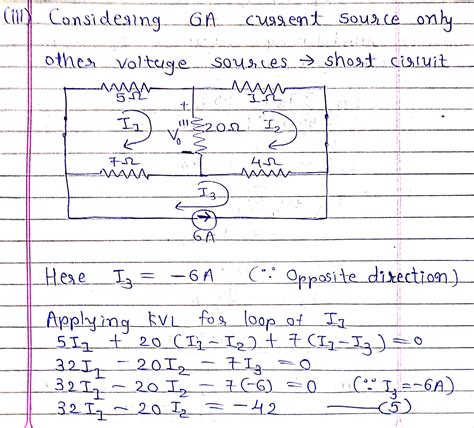 (iii) Considering 6A current source only
other voltage sources → short circuit
5Ω 1Ω
+
I1 V0''' 20Ω I2
-
7Ω 4Ω
I3
6A
Here I3 = -6A (∵ Opposite direction)
Applying KVL for loop of I1
5I1 + 20 (I1-I2) + 7(I1-I3)=0
32I1 - 20I2 - 7I3 = 0
32I1 - 20I2 - 7(-6) = 0 (∵ I3=-6A)
32I1 - 20I2 = -42 ——(5)